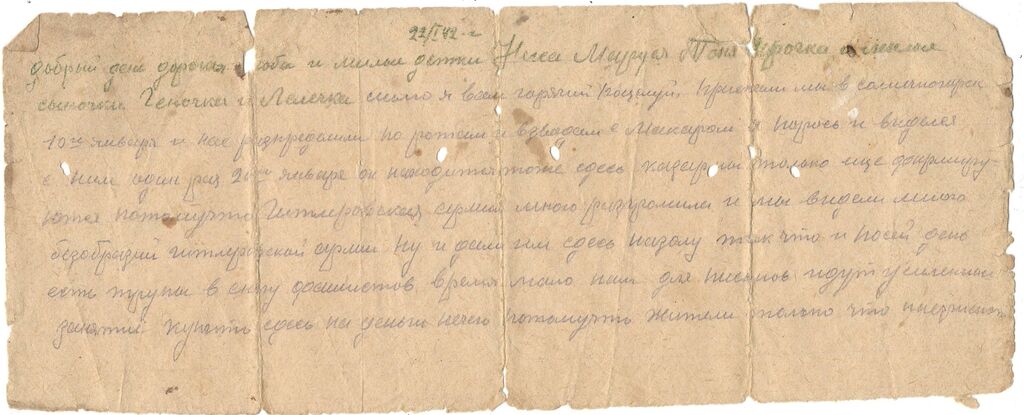 22/I 42 г
добрый день дорогая Люба и милые детки Нюся Маруся Тоня Ирочка и милые
сыночки Геночка и Лелечка шлю я вам горячий поцелуй. Приехали мы в солнечногорск
10го января и нас распределили по ротам и взводам с Макаром я порось и виделся
с ним один раз 20го января он находится тоже здесь казармы только еще формируу-
ются потомучто Гитлеровская армия много разгромила и мы видели много
безобразий гитлеровской армии ну и дали им здесь назолу так что и посей день
есть трупы в снегу фашистов время мало нам для письмов идут усиленные
занятия купить здесь на деньги нечего потомучто жители только что